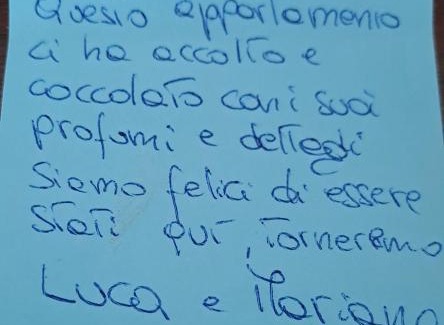 Questo appartamento
ci ha accolto e
coccolato con i suoi
profumi e dettagli
Siamo felici di essere
stati qui, torneremo
Luca e Mariana